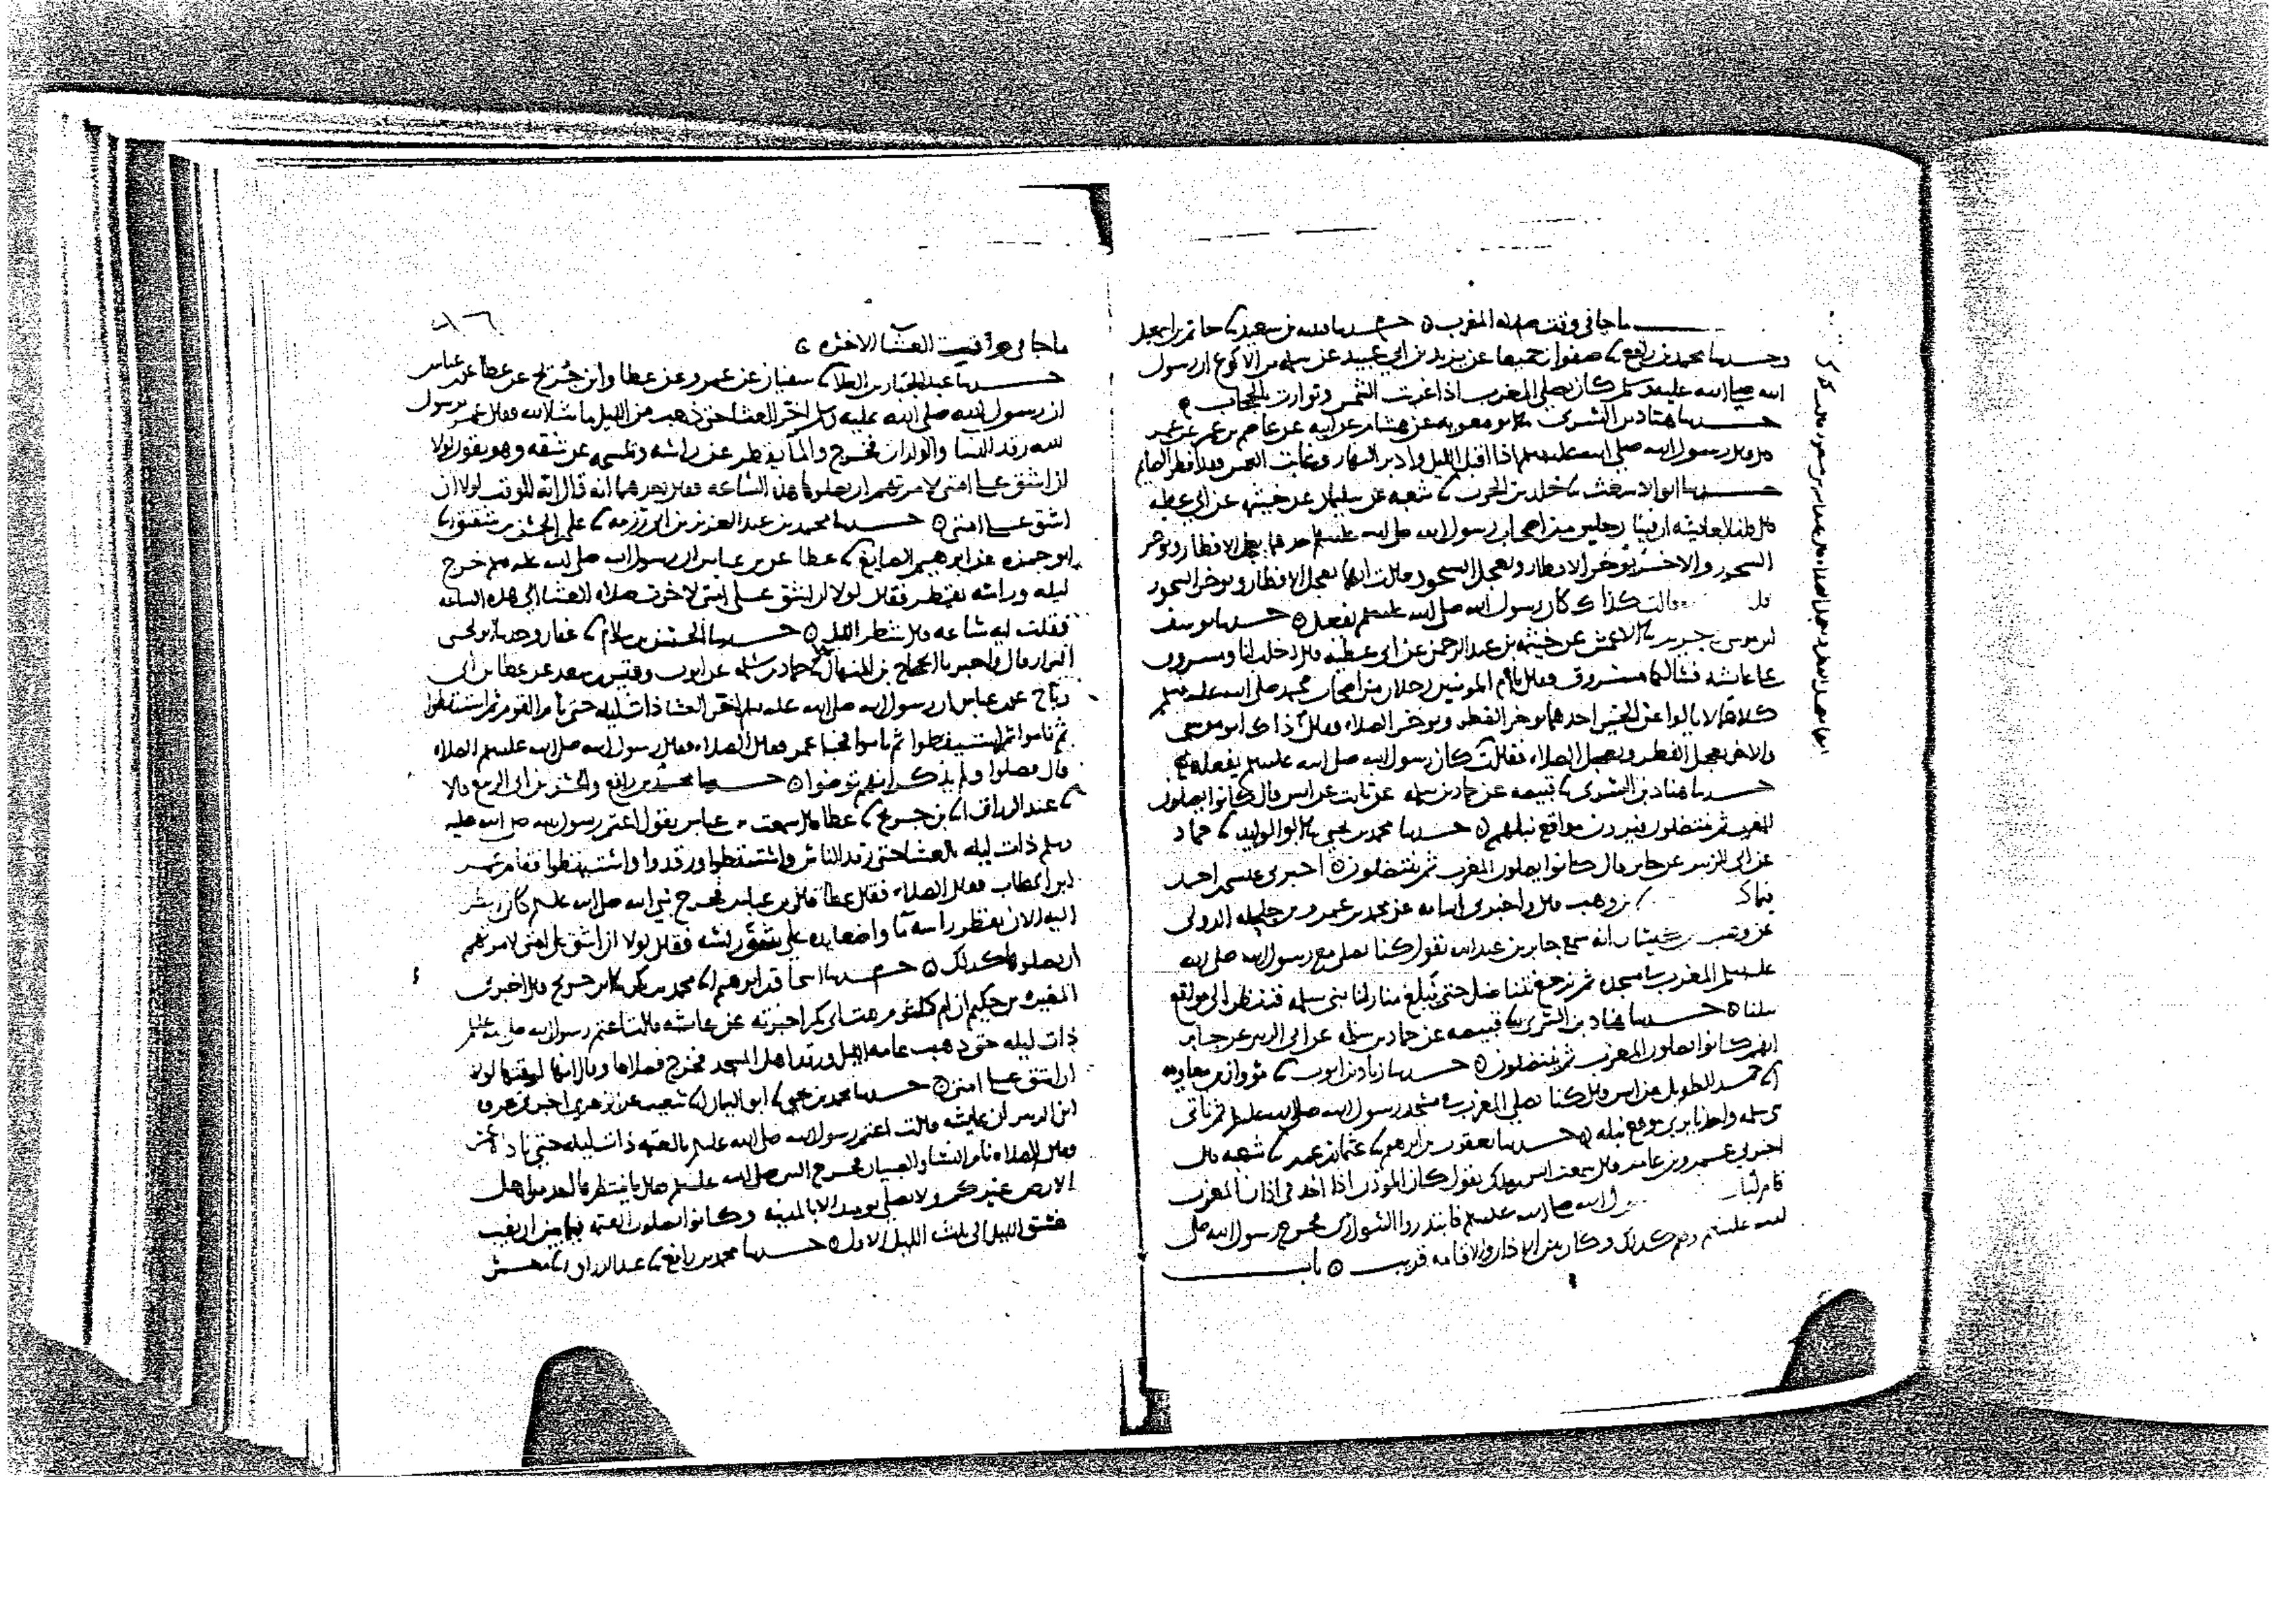 ماجا في وقت صلاه المغرب حدثنا قتيبه بن سعيد نا حاتم بن اسمعيل
وحدثنا محمد بن رافع نا صفوان جميعا عن يزيد بن ابي عبيد عن سلمه بن الاكوع ان رسول
الله صلى الله عليه وسلم كان يصلي المغرب اذا غربت الشمس وتوارت بالحجاب
حدثنا هناد بن السري نا ابو معويه عن هشام عن ابيه عن عاصم بن عمر عن عمر
قال قال رسول الله صلى الله عليه وسلم اذا اقبل الليل وادبر النهار وغابت الشمس فقد افطر الصايم
حدثنا ابو الاشعث نا خلد بن الحرث نا شعبه عن سليمن عن خيثمه عن ابي عطيه
قال قلنا لعايشه ان فينا رجلين من اصحاب رسول الله صلى الله عليه وسلم احدهما يعجل الافطار ويوخر
السحور والاخر يوخر الافطار ويعجل السحور قالت ايهما يعجل الافطار ويوخر السحور
قالت كذاك كان رسول الله صلى الله عليه وسلم يفعل حدثنا يوسف
ابن موسى نا جرير نا الاعمش عن خيثمه بن عبد الرحمن عن ابي عطيه قال دخلت انا ومسروق
على عايشه فقال لها مسروق يا ام المومنين رجلان من اصحاب محمد صلى الله عليه وسلم
كلاهما لا يالوا عن الخير احدهما يوخر الفطر ويوخر الصلاه
والاخر يعجل الفطر ويعجل الصلاه فقالت كان رسول الله صلى الله عليه وسلم يفعله
حدثنا هناد بن السري نا قبيصه عن حماد بن سلمه عن ثابت عن انس قال كانوا يصلون
المغرب ثم ينتضلون فيرون مواقع نبلهم حدثنا محمد بن يحيى نا ابو الوليد نا حماد
عن ابي الزبير عن جابر قال كانوا يصلون المغرب ثم ينتضلون اخبرني عيسى بن احمد
بن وهب قال واخبرني اسامه عن محمد بن عمرو بن حلحله الدولي
عن وهب بن كيسان انه سمع جابر بن عبد الله يقول كنا نصلي مع رسول الله صلى الله
عليه وسلم المغرب في مسجده ثم نرجع نتناضل حتى نبلغ منازلنا بني سلمه فننظر الى مواقع
نبلنا حدثنا هناد بن السري نا قبيصه عن حماد بن سلمه عن ابي الزبير عن جابر
انهم كانوا يصلون المغرب ثم ينتضلون حدثنا زياد بن ايوب نا مروان بن معاويه
نا حميد الطويل عن انس قال كنا نصلي المغرب في مسجد رسول الله صلى الله عليه وسلم ثم ناتي
بني سلمه واحدنا يرى موقع نبله حدثنا يعقوب بن ابرهيم نا عثمان بن عمر نا شعبه قال
اخبرني عمرو بن عامر قال سمعت انس بن ملك يقول كان الموذن اذا اخذ في اذان المغرب
قام لباب رسول الله صلى الله عليه وسلم فابتدروا السواري فخرج رسول الله صلى
الله عليه وسلم وهم كذلك وكان بين الاذان والاقامه قريب باب
ماجا في مواقيت العشا الاخره
حدثنا عبد الجبار بن العلا نا سفيان عن عمرو عن عطا وابن جريج عن عطا عن ابن عباس
ان رسول الله صلى الله عليه وسلم اخر العشا حتى ذهب من الليل ما شا الله فقال عمر يرسول
الله رقد النسا والولدان فخرج والما يقطر عن راسه وهو يمسحه عن شقه وهو يقول لولا
ان اشق على امتي لامرتهم ان يصلوها هذه الساعه فقال احدهما انه قال انه للوقت لولا ان
اشق على امتي حدثنا محمد بن عبد العزيز بن ابي رزمه نا علي بن الحسن بن شقيق نا
ابو حمزه عن ابرهيم الصايغ عن عطا عن بن عباس ان رسول الله صلى الله عليه وسلم خرج
ليله وراسه يقطر فقال لولا ان اشق على امتي لاخرت صلاه العشا الى هذه الساعه
فقلت ايه ساعه قال شطر الليل حدثنا الحسن بن سلام نا عفان وحدثنا يحيى
البزار قال واخبرنا الحجاج بن المنهال نا حماد بن سلمه عن ايوب وقيس بن سعد عن عطا بن ابي
رباح عن بن عباس ان رسول الله صلى الله عليه وسلم اخر العشا ذات ليله حتى نام القوم ثم استيقظوا
ثم ناموا ثم استيقظوا ثم ناموا فجا عمر فقال الصلاه يرسول الله صلى الله عليه وسلم الصلاه
قال فصلوا ولم يذكر انهم توضوا حدثنا محمد بن رافع والحسن بن ابي الربيع قالا
نا عبد الرزاق انا بن جريج نا عطا قال سمعت بن عباس يقول اعتم رسول الله صلى الله عليه
وسلم ذات ليله بالعشا حتى رقد الناس واستيقظوا ورقدوا واستيقظوا فقام عمر
ابن الخطاب فقال الصلاه فقال عطا قال بن عباس فخرج نبي الله صلى الله عليه وسلم كاني انظر
اليه الان يقطر راسه ما واضعا يده على شق راسه فقال لولا ان اشق على امتي لامرتهم
ان يصلوها كذلك حدثنا اسحاق بن ابرهيم نا محمد بن بكر نا بن جريج قال اخبرني
المغيره بن حكيم ان ام كلثوم بنت ابي بكر اخبرته عن عايشه قالت اعتم رسول الله صلى الله عليه وسلم
ذات ليله حتى ذهب عامه الليل ورقد اهل المسجد فخرج فصلاها وقال انها لوقتها لولا
ان اشق على امتي حدثنا محمد بن يحيى نا ابو اليمان نا شعيب عن الزهري اخبرني عروه
ابن الزبير ان عايشه قالت اعتم رسول الله صلى الله عليه وسلم بالعتمه ذات ليله حتى ناداه عمر
فقال الصلاه نام النسا والصبيان فخرج النبي صلى الله عليه وسلم فقال ما ينتظرها احد من اهل
الارض غيركم ولا يصلى يوميذ الا بالمدينه وكانوا يصلون العتمه فيما بين ان يغيب
غسق الليل الى ثلث الليل الاول حدثنا محمد بن رافع نا عبد الرزاق انا معمر